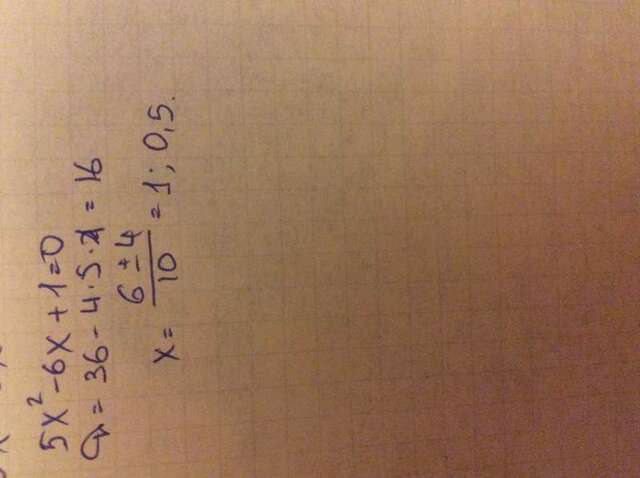 5x² - 6x + 1 = 0
D = 36 - 4 · 5 · 1 = 16
x = (6 ± 4)/10 = 1; 0,5.